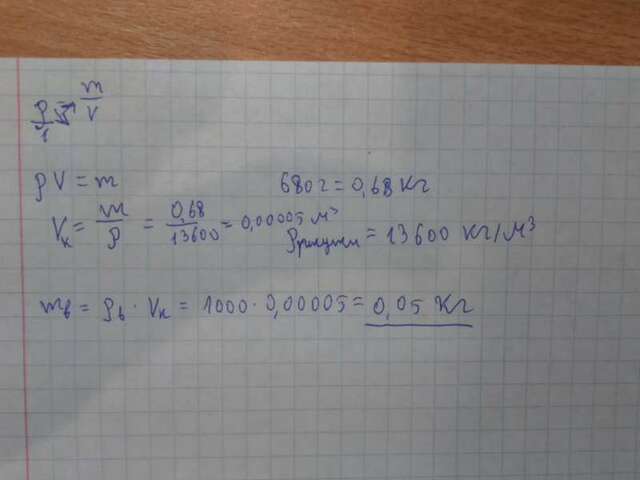 ρ/1 = m/V
ρV = m
680г = 0,68 кг
Vк = m/ρ = 0,68/13600 = 0,00005 м³
ρртути = 13600 кг/м³
mв = ρв · Vк = 1000 · 0,00005 = 0,05 кг